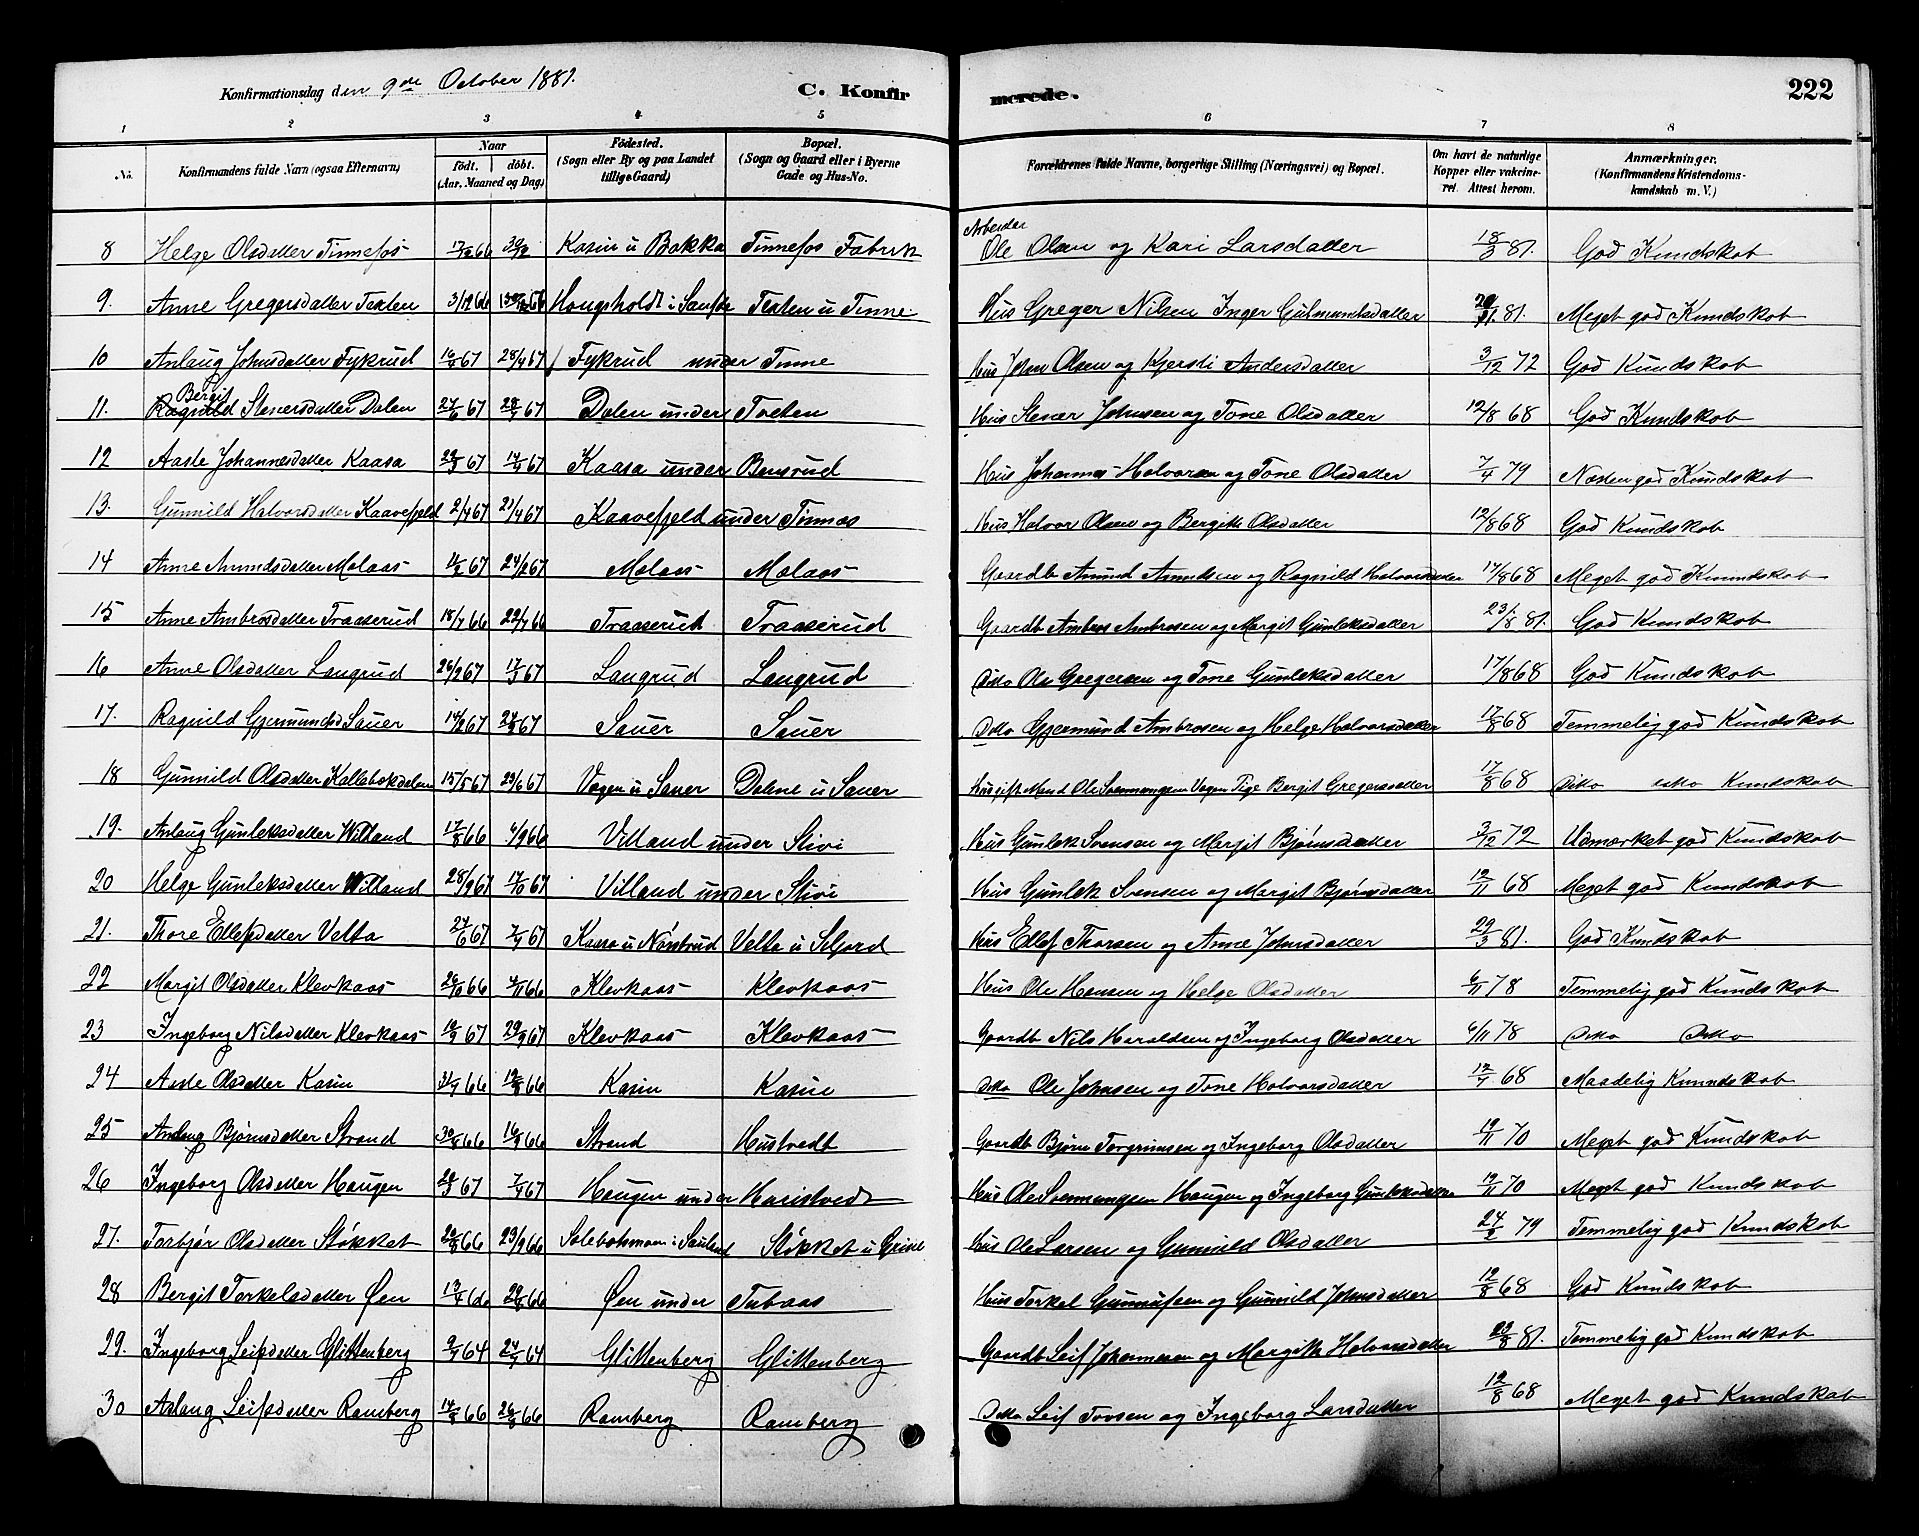 Konfirmationsdag den 9de October 1881. C. Konfirmerede. 222
1 2 3 4 5 6 7 8
No. Konfirmandens fulde Navn (ogsaa Efternavn) Naar født. døbt. (Aar. Maaned og Dag) Fødested. (Sogn eller By og paa Landet tillige Gaard) Bopæl. (Sogn og Gaard eller i Byerne Gade og Hus-No. Forældrenes fulde Navne, borgerlige Stilling (Næringsvei) og Bopæl. Om havt de naturlige Kopper eller vakcineret. Attest herom. Anmærkninger. (Konfirmandens Kristendomskundskab m. V.)
8 Helge Olsdatter Tinnefos Kasin u Bakka Tinnefos Fabrik Arbeider Ole Olsen og Kari Larsdatter 18/3 81. God Kundskab
9. Anne Gregersdatter Texten 3/12 66 Texten u Tinne Hus Greger Nilsen Inger Gulmundsdatter 81. Meget god Kundskab
10 Aslaug Johnsdatter Fykrud 16/4 67 28/4 67 Fykrud under Tinne Hus John Olsen og Kjersti Andersdatter 3/12 72 God Kundskab
11. Bergit Stenersdatter Dalen 67 67 Dalen under Tveten Hus Stener Johnsen og Tone Olsdatter 12/8 68 God Kundskab
12 Aasle Johannesdatter Kaasa 67 67 Kaasa under Bensrud Hus Johannes Halvorsen og Tone Olsdatter 7/4 79 Næsten god Kundskab
13. Gunnild Halvorsdatter Kaavefjeld 2/4 67 21/4 67 Kaavefjeld under Tinnes Hus Halvor Olsen og Bergith Olsdatter 12/8 68 God Kundskab
14 Anne Amundsdatter Molaas 67 24/2 67 Molaas Molaas Gaardb Amund Amundsen og Ragnild Halvorsdatter 17/8 68 Meget god Kundskab
15 Anne Ambrosdatter Traaserud 18/7 66 22/7 66 Traaserud Traaserud Gaardb Ambros Ambrosen og Margit Gunleksdatter 23/8 81. God Kundskab
16 Anne Olsdatter Langrud 26/2 67 17/3 67 Langrud Langrud Ditto Ole Gregersen og Tone Gunleksdatter 17/8 68 God Kundskab
17. Ragnild Gjermundsd Sauer 14/2 67 67 Sauer Sauer Ditto Gjermund Ambrosen og Helge Halvorsdatter 17/8 68 Temmelig god Kundskab
18 Gunnild Olsdatter Kallebækdalen 15/5 67 23/6 67 Vagen u Sauer Dalene u Sauer Ugift Mand Ole Svennungsen Vagen Pige Bergit Gregersdatter 17/8 68 Ditto ditto Kundskab
19. Aslaug Gunleksdatter Villand 17/8 66 9/9 66 Villand under Stivi Hus Gunlek Svensen og Margit Bjørnsdatter 3/12 72 Udmærket god Kundskab
20 Helge Gunleksdatter Villand 28/9 67 17/10 67 Villand under Stivi Hus Gunlek Svensen og Margit Bjørnsdatter 12/11 68 Meget god Kundskab
21. Thore Ellefsdatter Velta 67 7/7 67 Kaasa u Nørstrud Velta u Seljord Hus Ellef Thorsen og Anne Johnsdatter 29/3 81. God Kundskab
22 Margit Olsdatter Klevkaas 66 66 Klevkaas Klevkaas Hus Ole Hansen og Helge Olsdatter 6/11 78 Temmelig god Kundskab
23 Ingeborg Nilsdatter Klevkaas 67 29/9 67 Klevkaas Klevkaas Gaardb Nils Haraldsen og Ingeborg Olsdatter 6/11 78 Ditto Ditto
24 Aasle Olsdatter Kasin 31/7 66 19/8 66 Kasin Kasin Ditto Ole Johnsen og Tone Halvorsdatter 12/7 68 Maadelig Kundskab
25 Aslaug Bjørnsdatter Strand 30/8 66 16/9 66 Strand Hustvedt Gaardb Bjørn Torgrimsen og Ingeborg Olsdatter 19/11 70 Meget god Kundskab
26 Ingeborg Olsdatter Haugen 67 7/4 67 Haugen under Haristvedt Hus Ole Svennungsen Haugen og Ingeborg Gunleksdatter 19/11 70 Meget god Kundskab
27. Torbjør Olsdatter Støkket 66 23/9 66 Støkket u Hus Ole Larsen og Gunnild Olsdatter 24/2 79 Temmelig god Kundskab
28 Bergit Torkelsdatter Øen 13/4 66 66 Øen under Tubaas Hus Torkel Gunnufsen og Gunnild Johnsdatter 12/8 68 God Kundskab
29. Ingeborg Leifsdatter Glittenberg 9/7 64 24/7 64 Glittenberg Glittenberg Gaardb Leif Johannesen og Margith Halvorsdatter 23/8 81. Temmelig god Kundskab
30 Aslaug Leifsdatter Ramberg 14/8 66 26/8 66 Ramberg Ramberg Ditto Leif Tovsen og Ingeborg Larsdatter 12/8 68 Meget god Kundskab